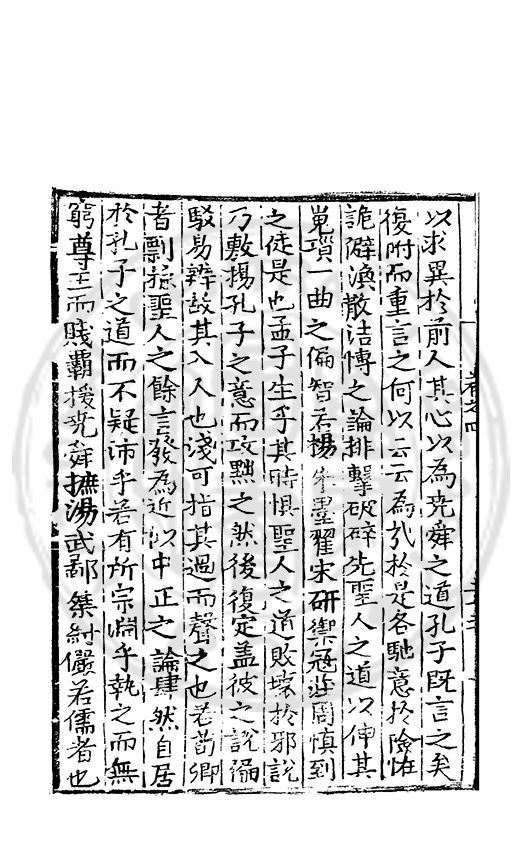 以求異於前人其心以為堯舜之道孔子既言之矣
復附而重言之何以云云為哉於是各馳意於險怪
詭僻渙散浩博之論排擊破碎先聖人之道以伸其
嵬瑣一曲之偏智若楊朱墨翟宋研禦冦莊周慎到
之徒是也孟子生乎其時懼聖人之道敗壞於邪說
乃敷揚孔子之意而攻黜之然後復定盖彼之說偏
駁易辨故其入人也淺可指其過而聲之也若荀卿
者剽掠聖人之餘言發為近似中正之論肆然自居
於孔子之道而不疑沛乎若有所宗淵乎執之而無
窮尊王而賤覇援堯舜摭湯武鄙桀紂儼若儒者也